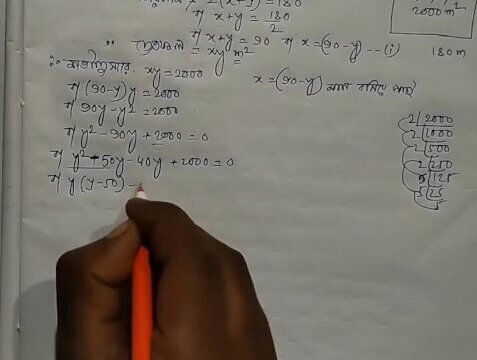 2(x+y)=180
বা x+y = 180/2
2000m²
বা x+y = 90 বা x=(90-y) --- (i)
180m
∴ ক্ষেত্রফল = xy m²
∴ প্রশ্নানুসারে, xy = 2000
x = (90-y) মান বসিয়ে পাই
বা (90-y)y = 2000
বা 90y-y² = 2000
বা y²-90y+2000 = 0
বা y²-50y-40y+2000 = 0
বা y(y-50) -
2 2000
2 1000
2 500
2 250
5 125
5 25
5